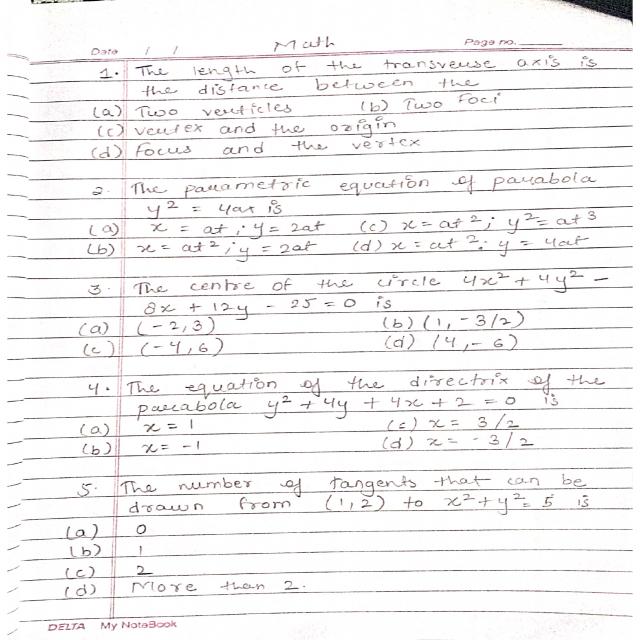 Math
Date / / Page no.
1. The length of the transverse axis is
the distance between the
(a) Two verticles (b) Two foci
(c) vertex and the origin
(d) Focus and the vertex
2. The parametric equation of parabola
y² = 4ax is
(a) x = at ; y = 2at (c) x = at² ; y² = at³
(b) x = at² ; y = 2at (d) x = at² ; y = 4at
3. The centre of the circle 4x² + 4y² -
8x + 12y - 25 = 0 is
(a) (-2,3) (b) (1, -3/2)
(c) (-4,6) (d) (4, -6)
4. The equation of the directrix of the
parabola y² + 4y + 4x + 2 = 0 is
(a) x = 1 (c) x = 3/2
(b) x = -1 (d) x = -3/2
5. The number of tangents that can be
drawn from (1,2) to x² + y² = 5 is
(a) 0
(b) 1
(c) 2
(d) More than 2.
DELTA My NoteBook